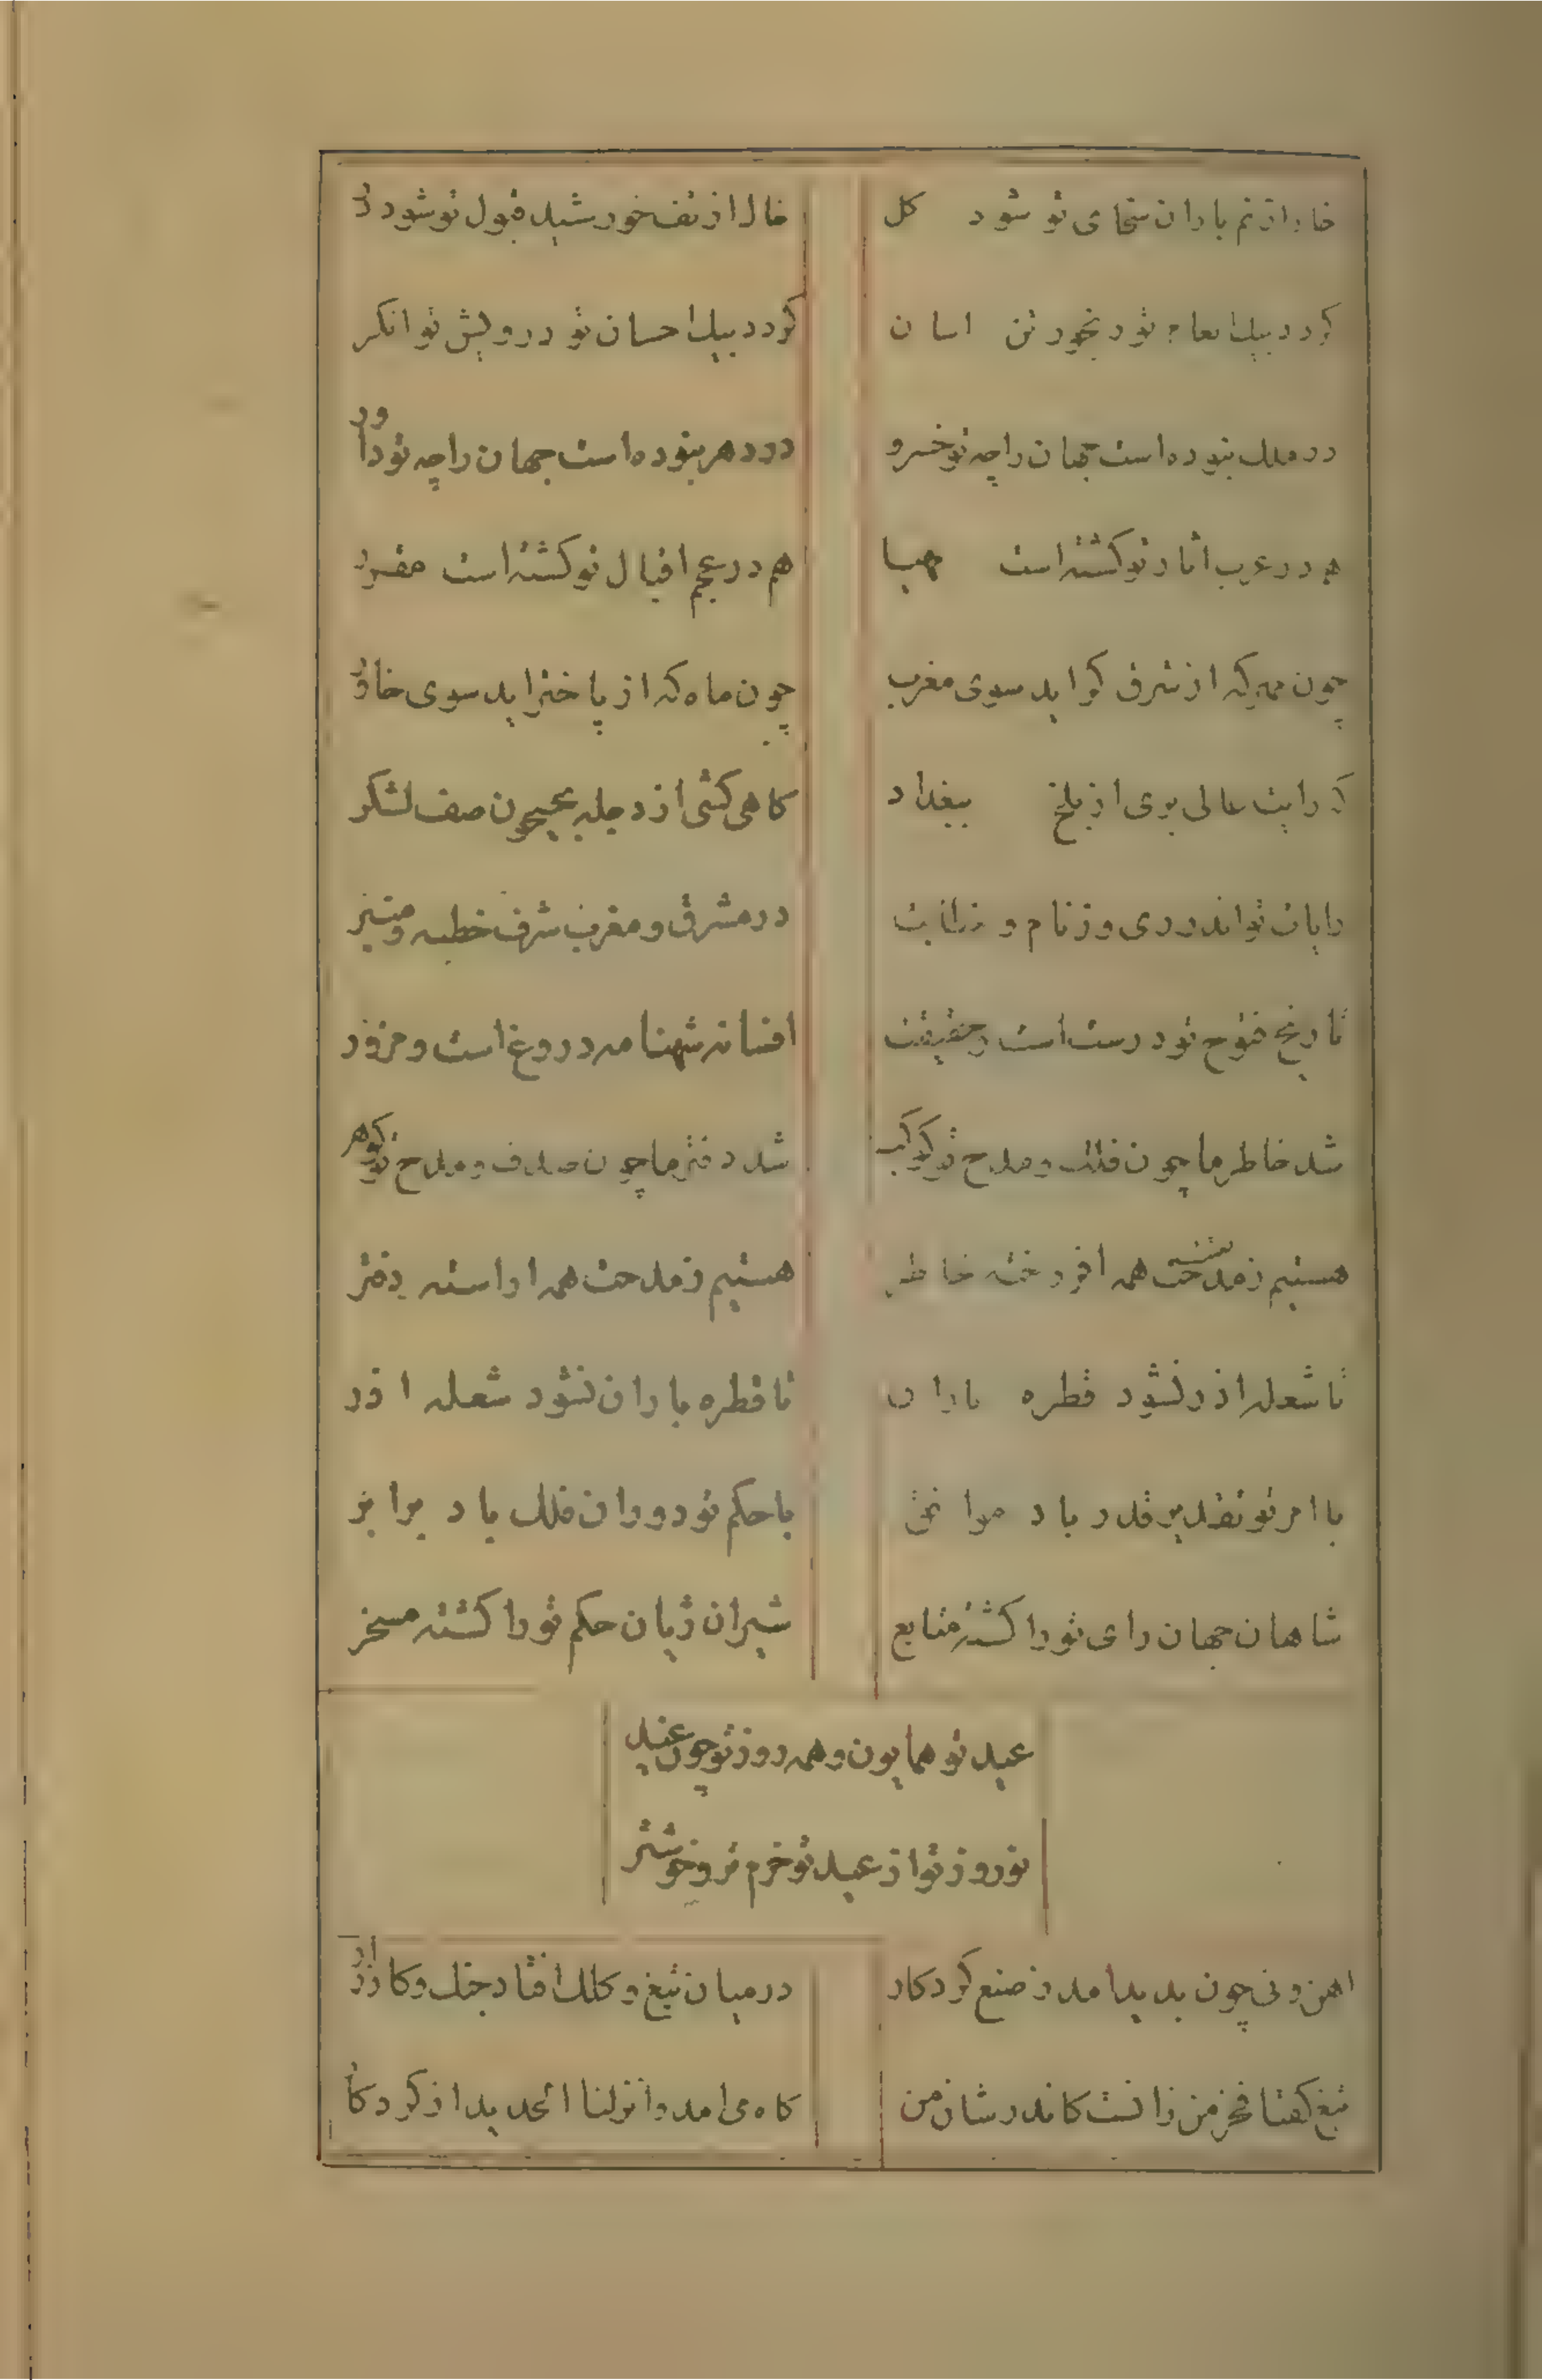 خار از نم باران سخای تو شود کل
خاک از تف خورشید قبول تو شود زر
کردد بیک انعام تو رنجور تن اسان
کردد بیک احسان تو درویش توانکر
در ملک نبوده است جهان را چه تو خسرو
در دهر نبوده است جهان را چه تو داور
هم در عرب اثار تو کشته است مهیا
هم در عجم اقبال تو کشته است مقرر
چون مهر که از شرق کراید سوی مغرب
چون ماه که از باختر اید سوی خاور
که رایت عالی بری از بلخ ببغداد
کاهی کشی از دجله بجیحون صف لشکر
رایان تو اند در ری و ز نام و
در مشرق و مغرب شرف خطبه و منبر
تاریخ فتوح تو درست است و حقیقت
افسانه شهنامه دروغ است و مزور
شد خاطر ما چون فلک و مدح تو کواکب
شد دفتر ما چون صدف و مدح تو کوهر
هستیم ز مدحت همه افروخته خاطر
هستیم ز مدحت همه اراسته دفتر
تا شعله اذر نشود قطره باران
تا قطره باران نشود شعله اذر
با امر تو تقدیر قدر باد موافق
با حکم تو دوران فلک باد برابر
شاهان جهان رای تو را کشته متابع
شیران ژیان حکم تو را کشته مسخر
عید تو همایون و همه روز تو چون عید
نوروز تو از عید تو خرم تر و خوشتر
اهن و نی چون بدید امد ز صنع کردکار
در میان تیغ و کلک افتاد جنک و کارزار
تیغ کفتا فخر من زانست کاندر شان من
کاه می امد و انزلنا الحدید از کردکار